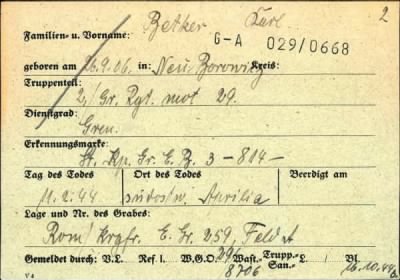 2
Familien- u. Vorname: Betker Karl
G-A 029/0668
geboren am 26.9.06. in: Neu Borowitz Kreis:
Truppenteil:
2/Gr. Rgt. mot 29.
Dienstgrad:
Gren.
Erkennungsmarke:
St. Kp. Gr. E. B. 3 -814-
Tag des Todes Ort des Todes Beerdigt am
11.2.44 südostw. Aprilia
Lage und Nr. des Grabes:
Rom Krgfr. E. Gr. 259, Feld A
Gemeldet durch: V.L. Ref I. W.G.O. 29/8706 Wast. Trupp. San. L./ Bl. 26.10.44